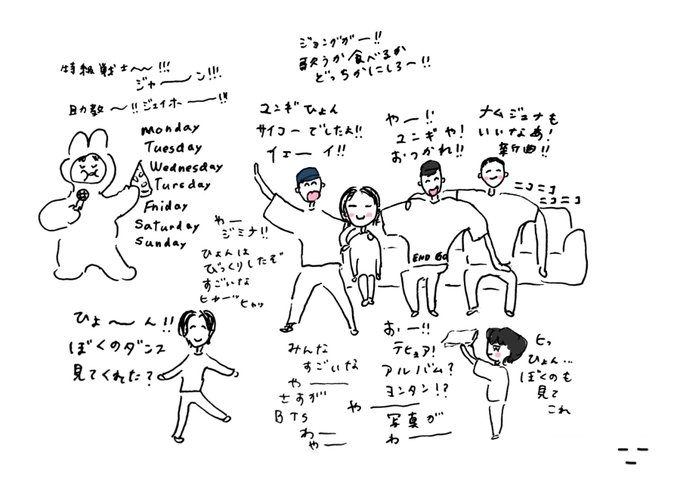 ジョングガー!!
歌うか食べるか
どっちかにしろ〜!!
特級戦士〜!!!
ジャーン!!!
助教〜!!ジェイホーー!!!
monday
Tuesday
Wednesday
Tursday
Fniday
Saturday
Sunday
ユンギひょん
サイコーでしたよ!!
イェーイ!!
やー!!
ユンギや!
おつかれ!!
ナムジュナも
いいなあ!
新曲!!
ニコニコ
ニコニコ
やー
ジミナ!!
ひょんは
びっくりしたぞ
すごいな
END
ひょ〜ん!!
ぼくのダンス
見てくれた?
みんな
すごいな
やー
さすが
BTS
わー
やー
おぃー!!
テヒョア!
アルバム?
ヨンタン!?
やー
写真が
わー
ヒっ
ひょん…
ぼくのも
見て
これ